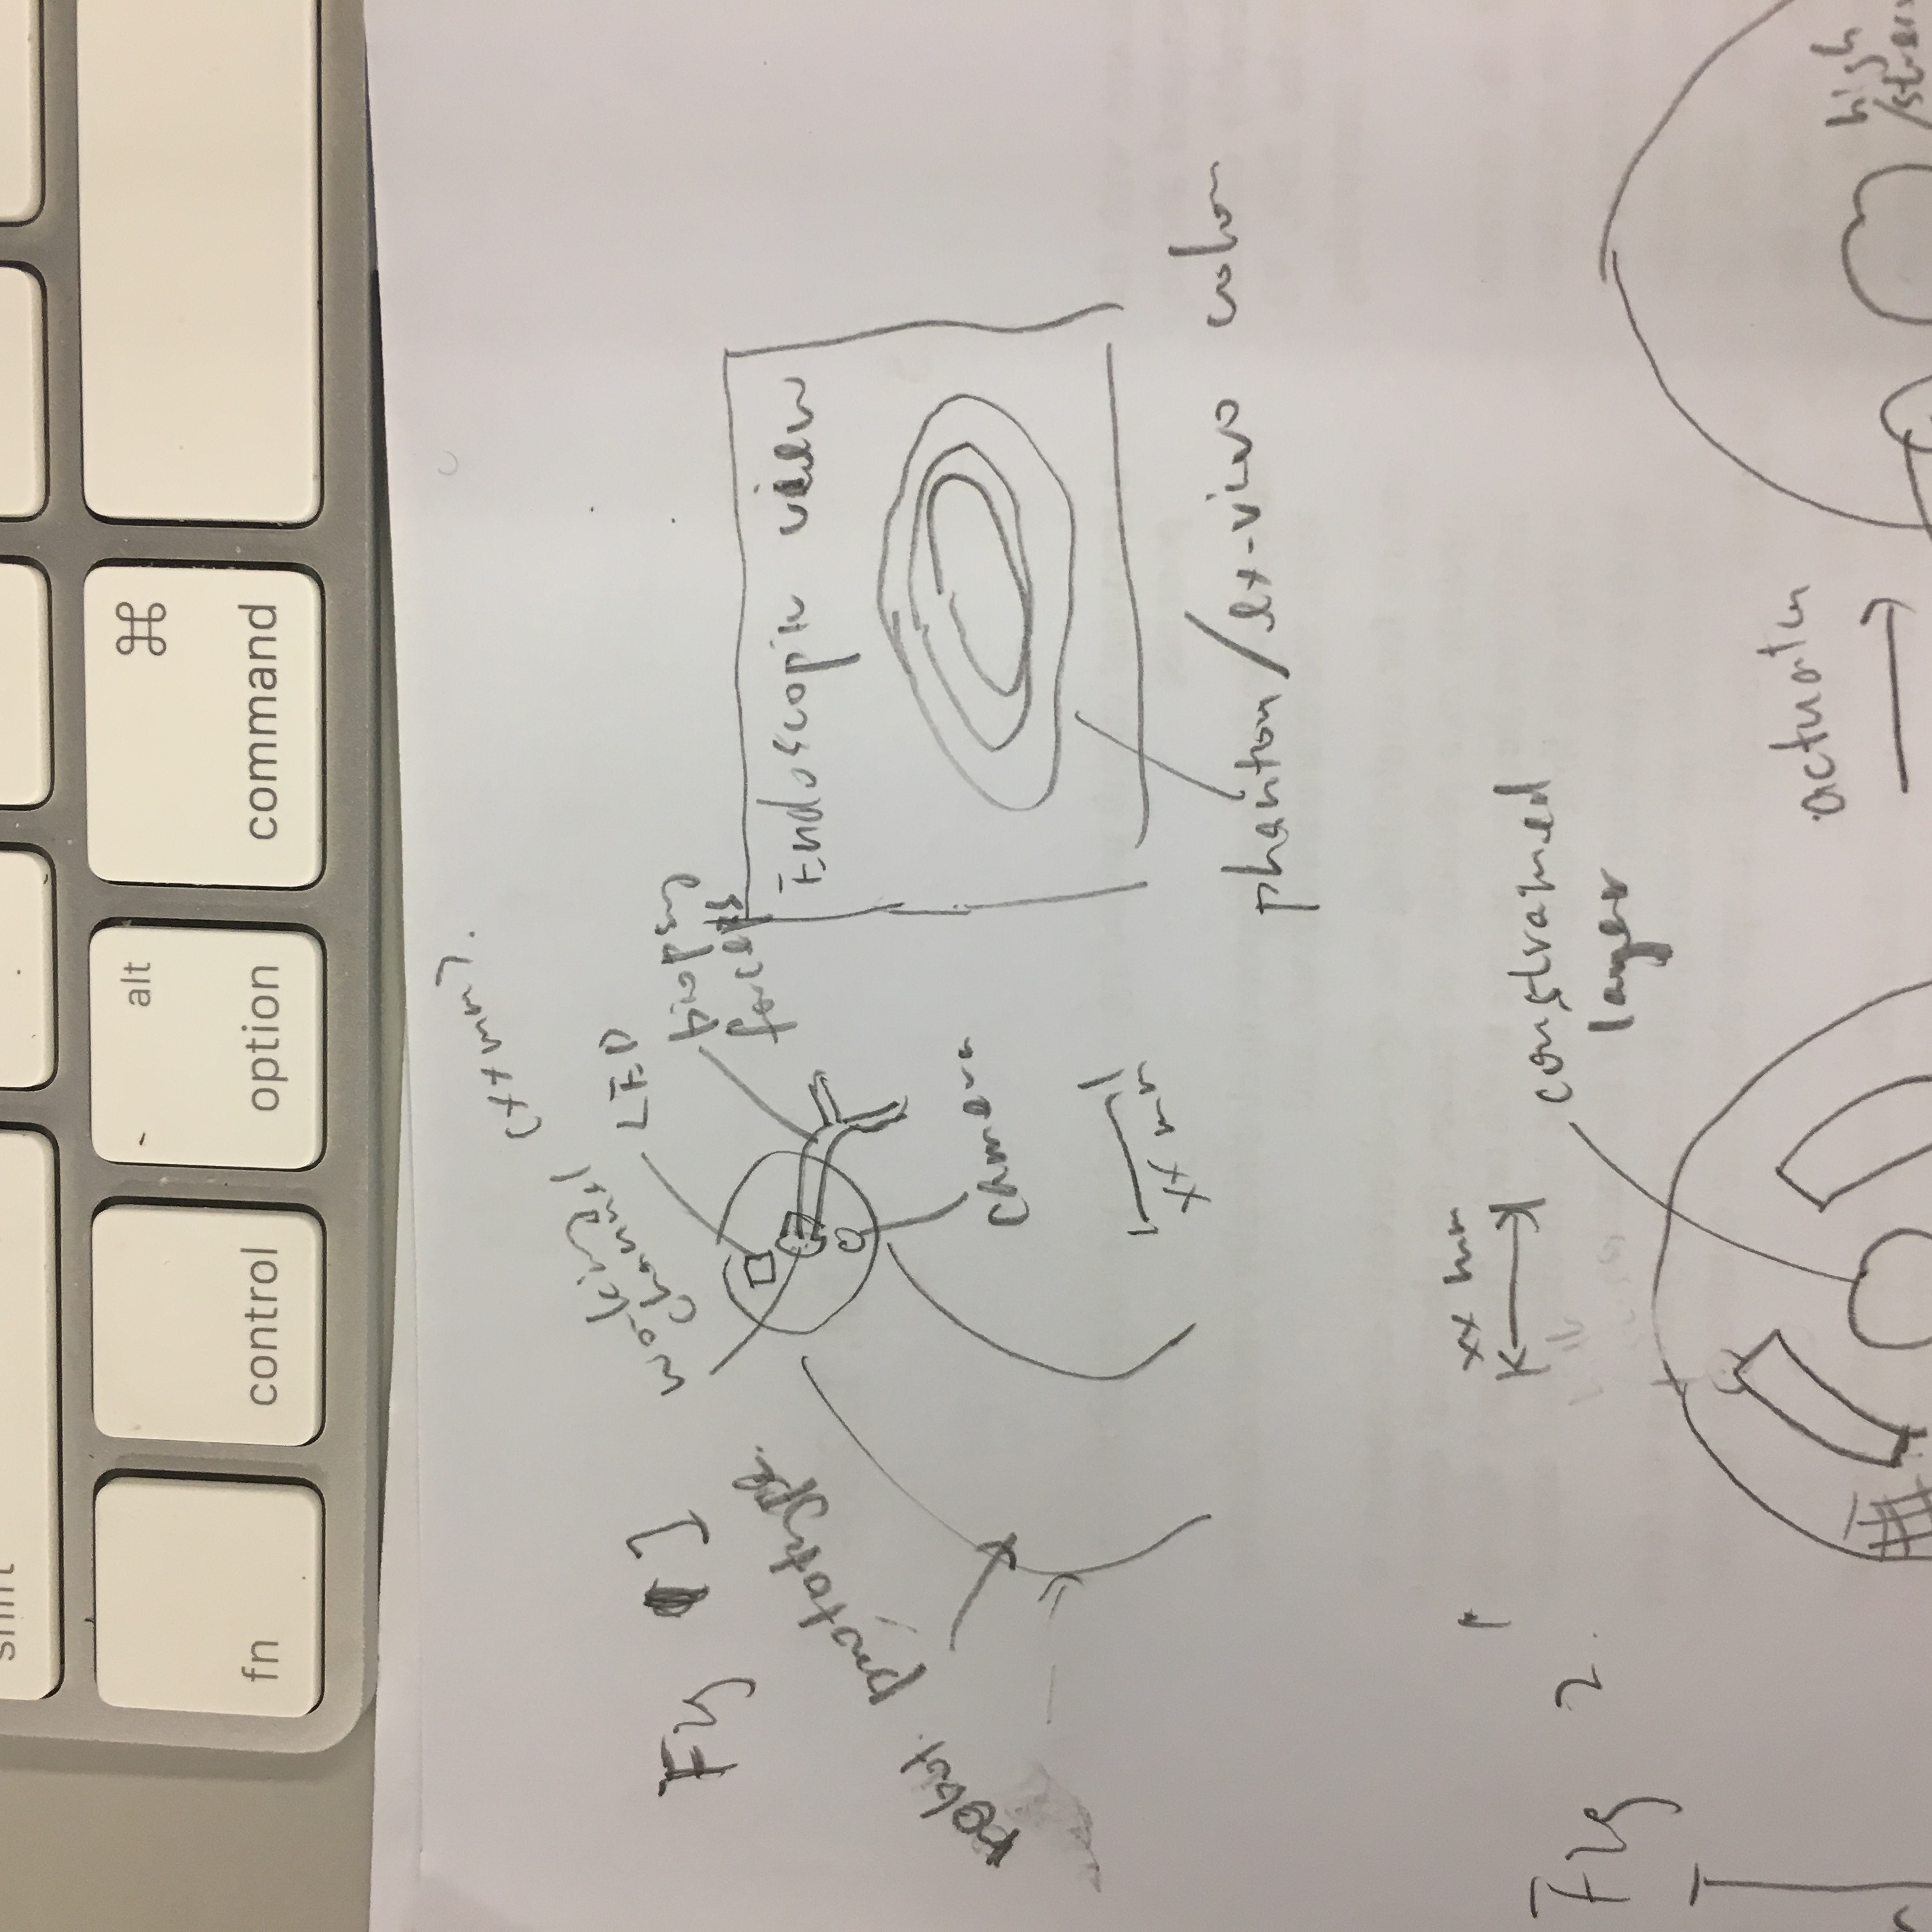 shift
fn
control
alt
option
⌘
command
Fig 1
robot prototype
working
channel
(xx mm).
LED
biopsy
forceps
camera
xx mm
Endoscopic view
phantom/ex-vivo colon
Fig 2
xx mm
constrained
layer
actuation
high